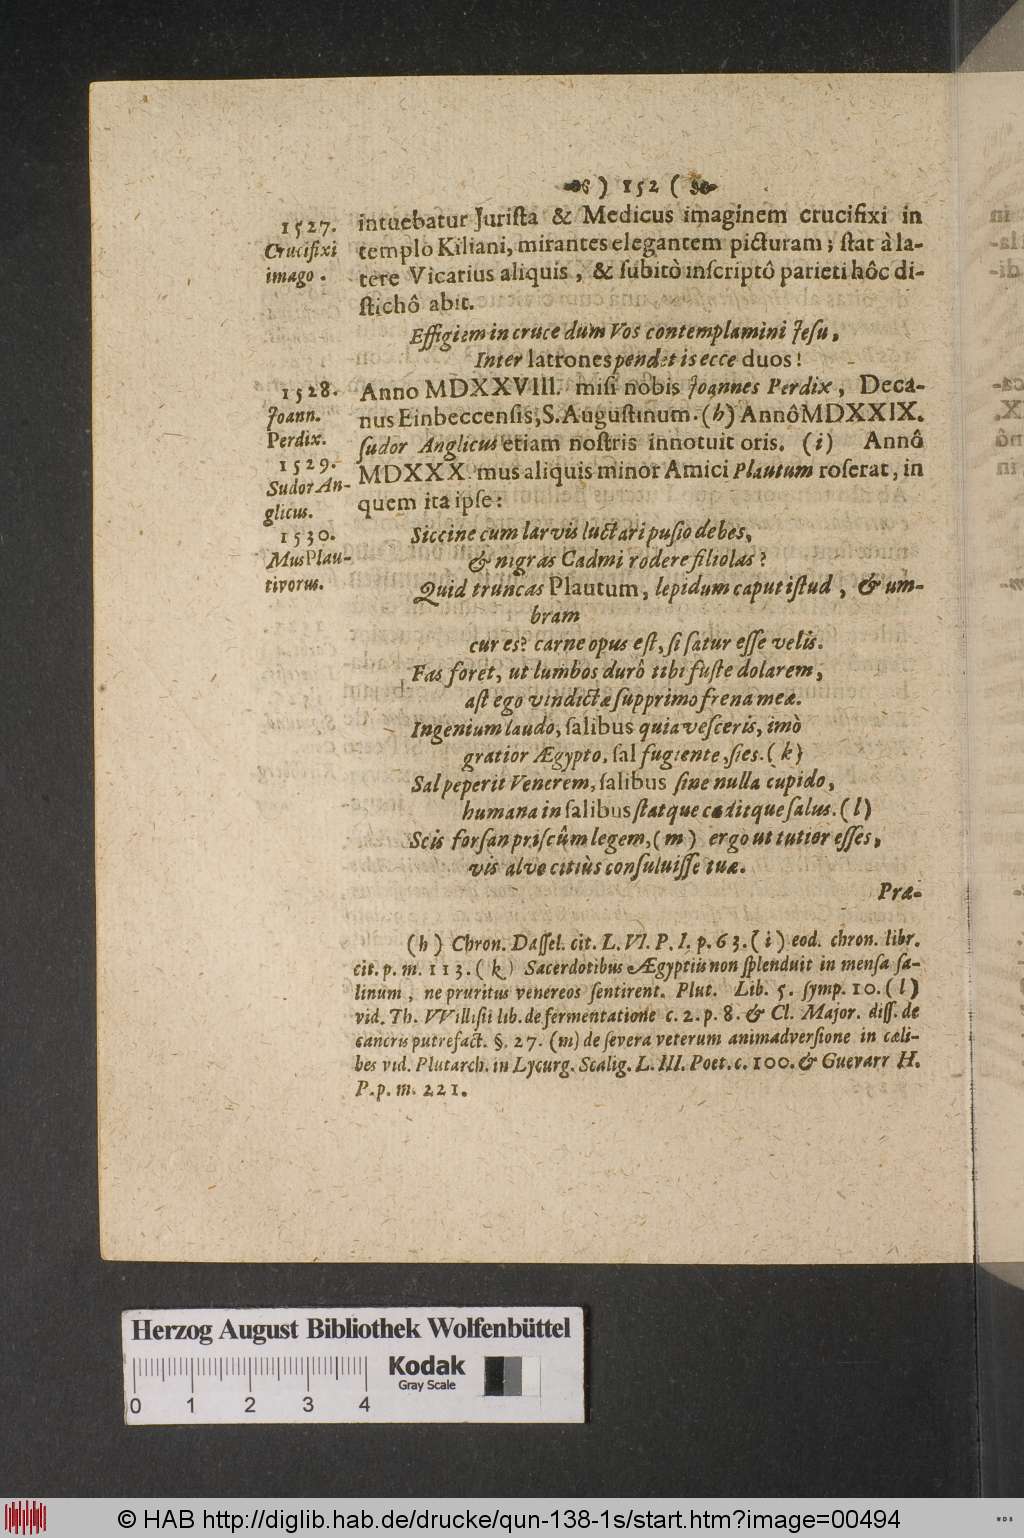 ) 152 (
1527.
Crucifixi
imago.
intuebatur Juriſta & Medicus imaginem crucifixi in
templo Kiliani, mirantes elegantem picturam; ſtat à la-
tere Vicarius aliquis, & ſubitò inſcriptô parieti hôc di-
ſtichô abit.
Effigiem in cruce dum Vos contemplamini Jeſu,
Inter latrones pendet is ecce duos!
1528.
Joann.
Perdix.
1529.
Sudor An-
glicus.
1530.
Mus Plau-
tivorus.
Anno MDXXVIII. miſi nobis Joannes Perdix, Deca-
nus Einbeccenſis, S. Auguſtinum. (h) Annô MDXXIX.
ſudor Anglicus etiam noſtris innotuit oris. (i) Annô
MDXXX. mus aliquis minor Amici Plautum roſerat, in
quem ita ipſe:
Siccine cum larvis luctari puſio debes,
& nigras Cadmi rodere filiolas?
Quid truncas Plautum, lepidum caput iſtud, & um-
bram
cur es? carne opus eſt, ſi ſatur eſſe velis.
Fas foret, ut lumbos durô tibi fuſte dolarem,
aſt ego vindictæ ſupprimo frena meæ.
Ingenium laudo, ſalibus quia veſceris, imò
gratior Ægypto, ſal fugiente, ſies. (k)
Sal peperit Venerem, ſalibus ſine nulla cupido,
humana in ſalibus ſtatque caditque ſalus. (l)
Scis forſan priſcûm legem, (m) ergo ut tutior eſſes,
vis alvo citiùs conſuluiſſe tuæ.
Præ-
(h) Chron. Daſſel. cit. L. VI. P. I. p. 63. (i) eod. chron. libr.
cit. p. m. 113. (k) Sacerdotibus Ægyptiis non ſplenduit in menſa ſa-
linum, ne pruritus venereos ſentirent. Plut. Lib. 5. ſymp. 10. (l)
vid. Th. VVilliſii lib. de fermentatione c. 2. p. 8. & Cl. Major. diſſ. de
cancris putrefact. §. 27. (m) de ſevera veterum animadverſione in cæli-
bes vid. Plutarch. in Lycurg. Scalig. L. III. Poet. c. 100. & Guevarr H.
P. p. m. 221.
Herzog August Bibliothek Wolfenbüttel
Kodak
Gray Scale
0 1 2 3 4
© HAB http://diglib.hab.de/drucke/qun-138-1s/start.htm?image=00494